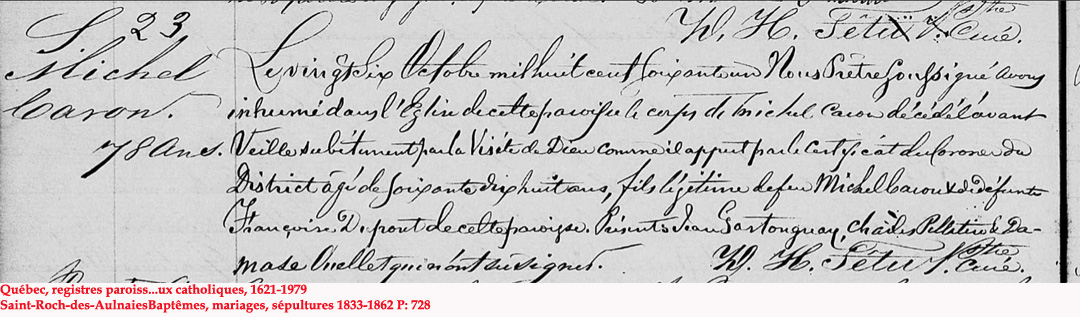 D. H. Têtu Ptre Curé.
S. 23
Michel
Caron.
78 Ans.
Le vingt six Octobre mil huit cent soixante un Nous Prêtre soussigné avons
inhumé dans l'Eglise de cette paroisse le corps de Michel Caron décédé l'avant
Veille subitement par la Visite de Dieu comme il appert par le certificat du Coroner du
District âgé de soixante dix huit ans, fils légitime de feu Michel Caron & de défunte
Françoise Dupont de cette paroisse. Présents Jean Gastonguay, Charles Pelletier & Da-
mase Ouellet qui n'ont su signer. D. H. Têtu Ptre Curé.
Québec, registres paroiss...ux catholiques, 1621-1979
Saint-Roch-des-AulnaiesBaptêmes, mariages, sépultures 1833-1862 P: 728